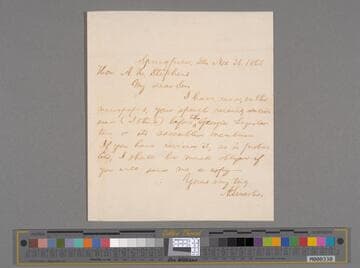 Springfield, Ills. Nov. 30, 1860
Hon. A. H. Stephens
My dear Sir
I have read, in the
newspapers, your speech recently delivered
(I think) before the Georgia Legisla-
ture, or its assembled members.
If you have revised it, as is prob-
able, I shall be much obliged if
you will send me a copy—
Yours very truly
A. Lincoln.
M000330